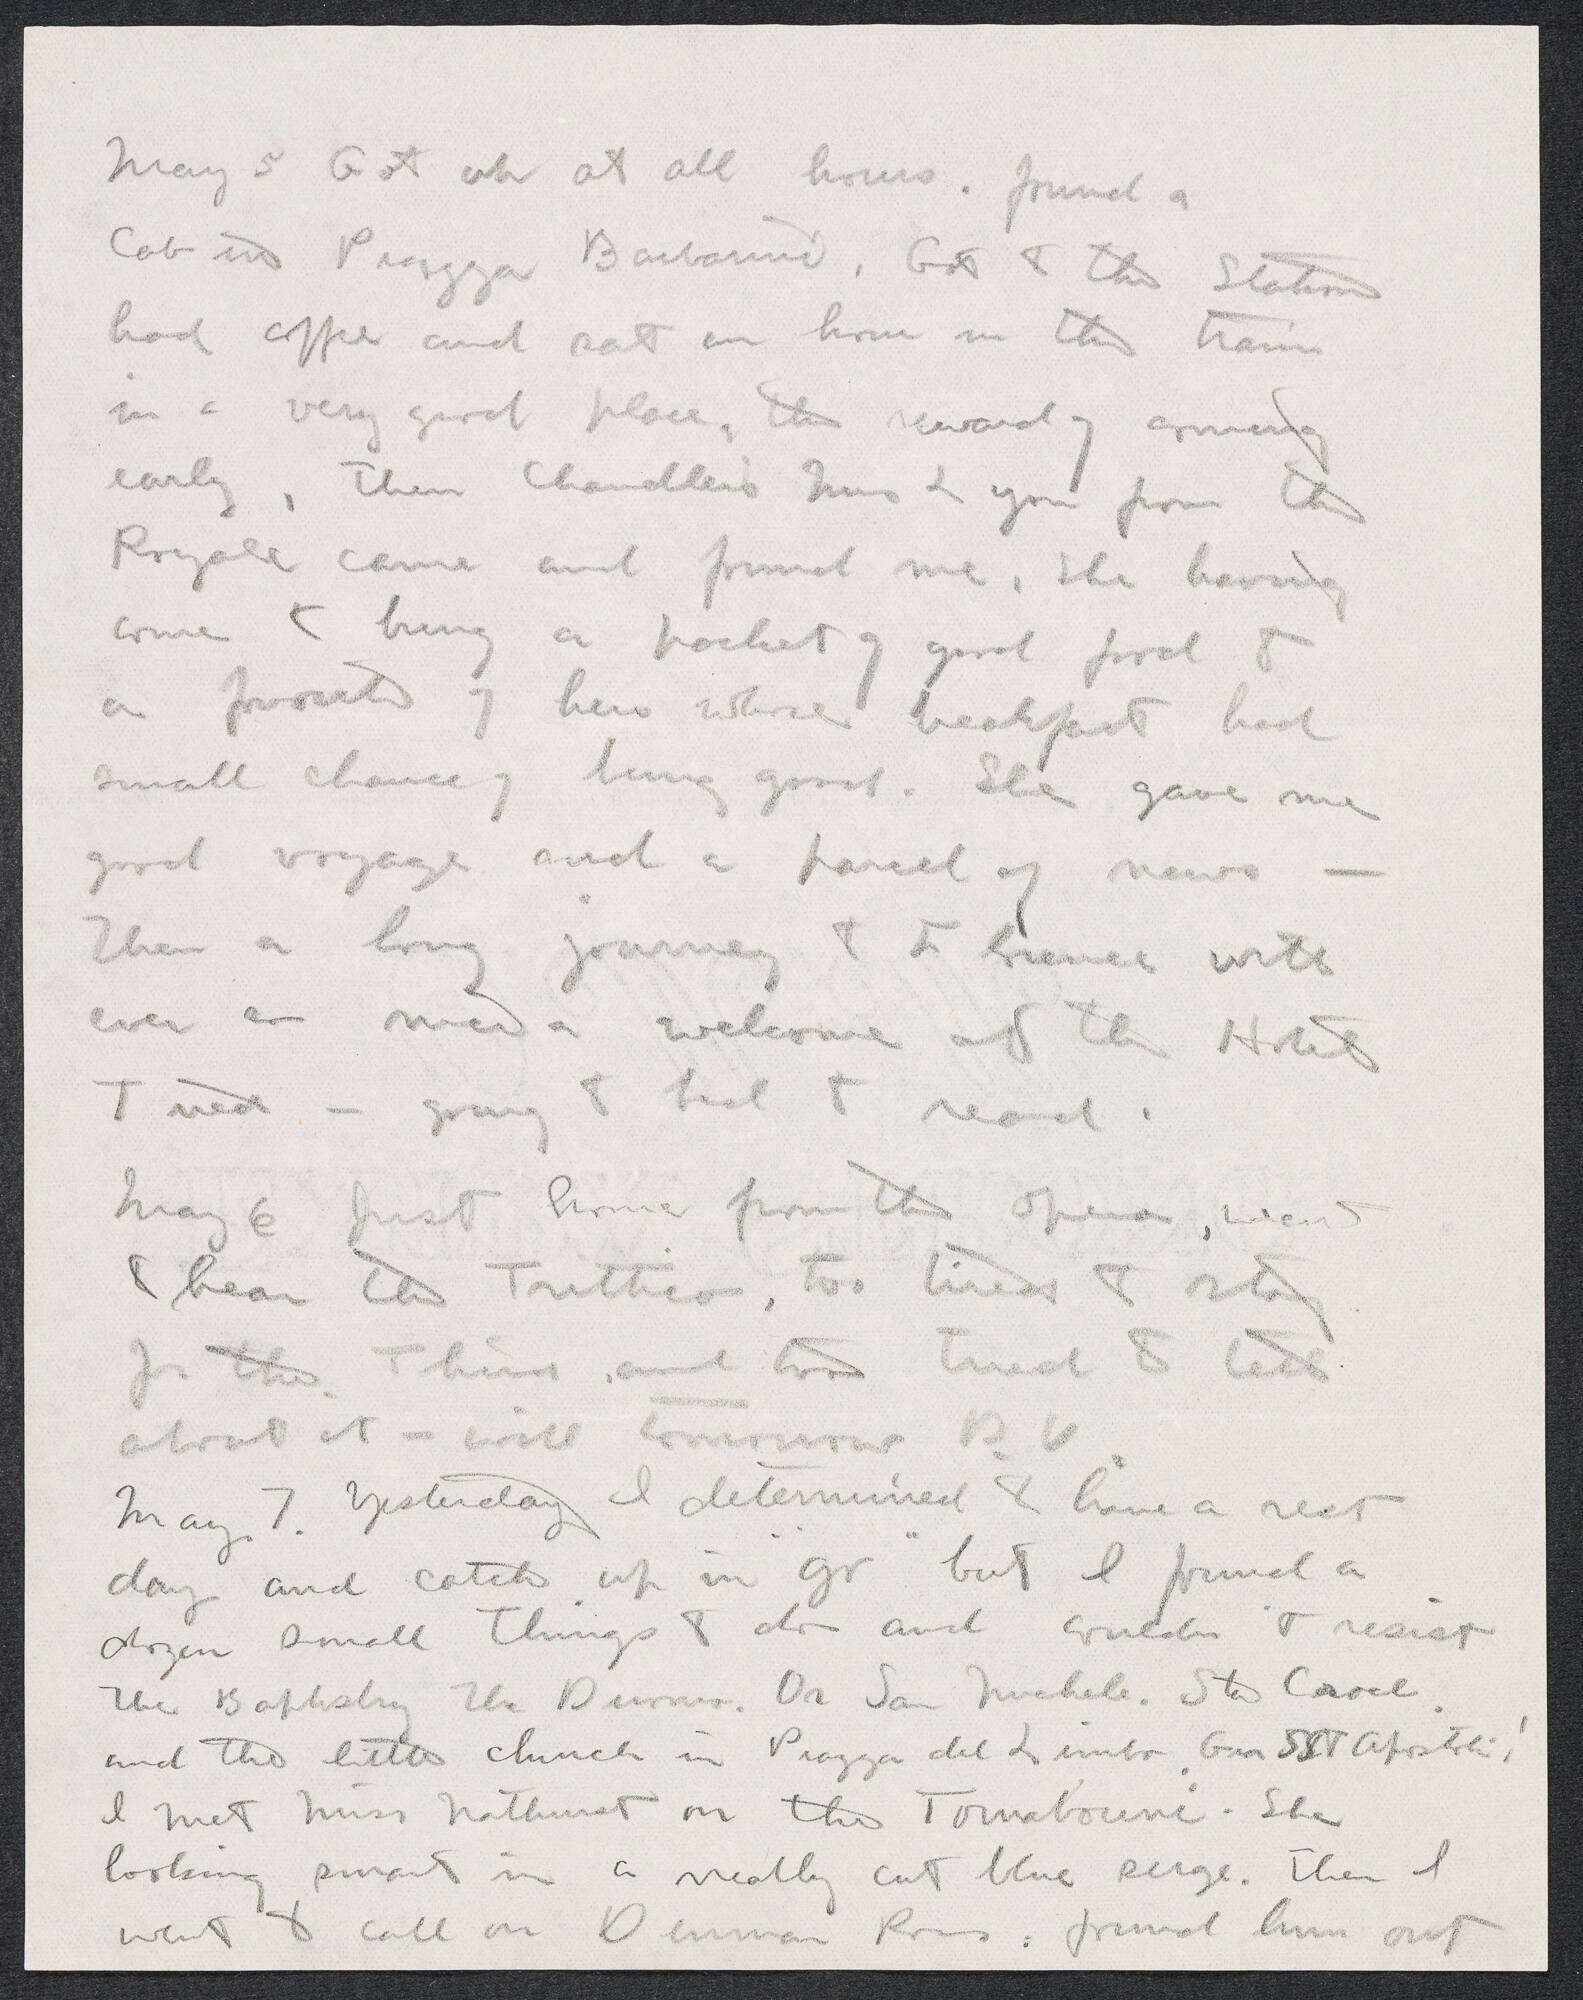 May 5 Got up at all hours. found a
Cab in Piazza Barbarini, Got to the Station
had coffee and sat an hour in the train
in a very good place, the reward of coming
early, then Chandler's from the
Royale came and found me, She having
come to bring a packet of good food to
a of hers whose breakfast had
small chance of being good. She gave me
good voyage and a parcel of news —
Then a long journey to Florence with
ever so a welcome at the Hotel
Tired — going to bed to read.
May 6 Just home from the opera, went
to hear the Trittico, too tired to stay
for the Third, and too tired to tell
about it – will tomorrow D.V.
May 7. Yesterday I determined to have a rest
day and catch up in "go" but I found a
dozen small things to do and couldn't resist
The Baptistry The Duomo. Or San Michele. Sta Croce.
and the little church in Piazza del Limbo, SST Apostoli!
I met Miss Nathurst on the Tornabouni. She
looking smart in a neatly cut blue serge. Then I
went to call on Denman Ross. found him out